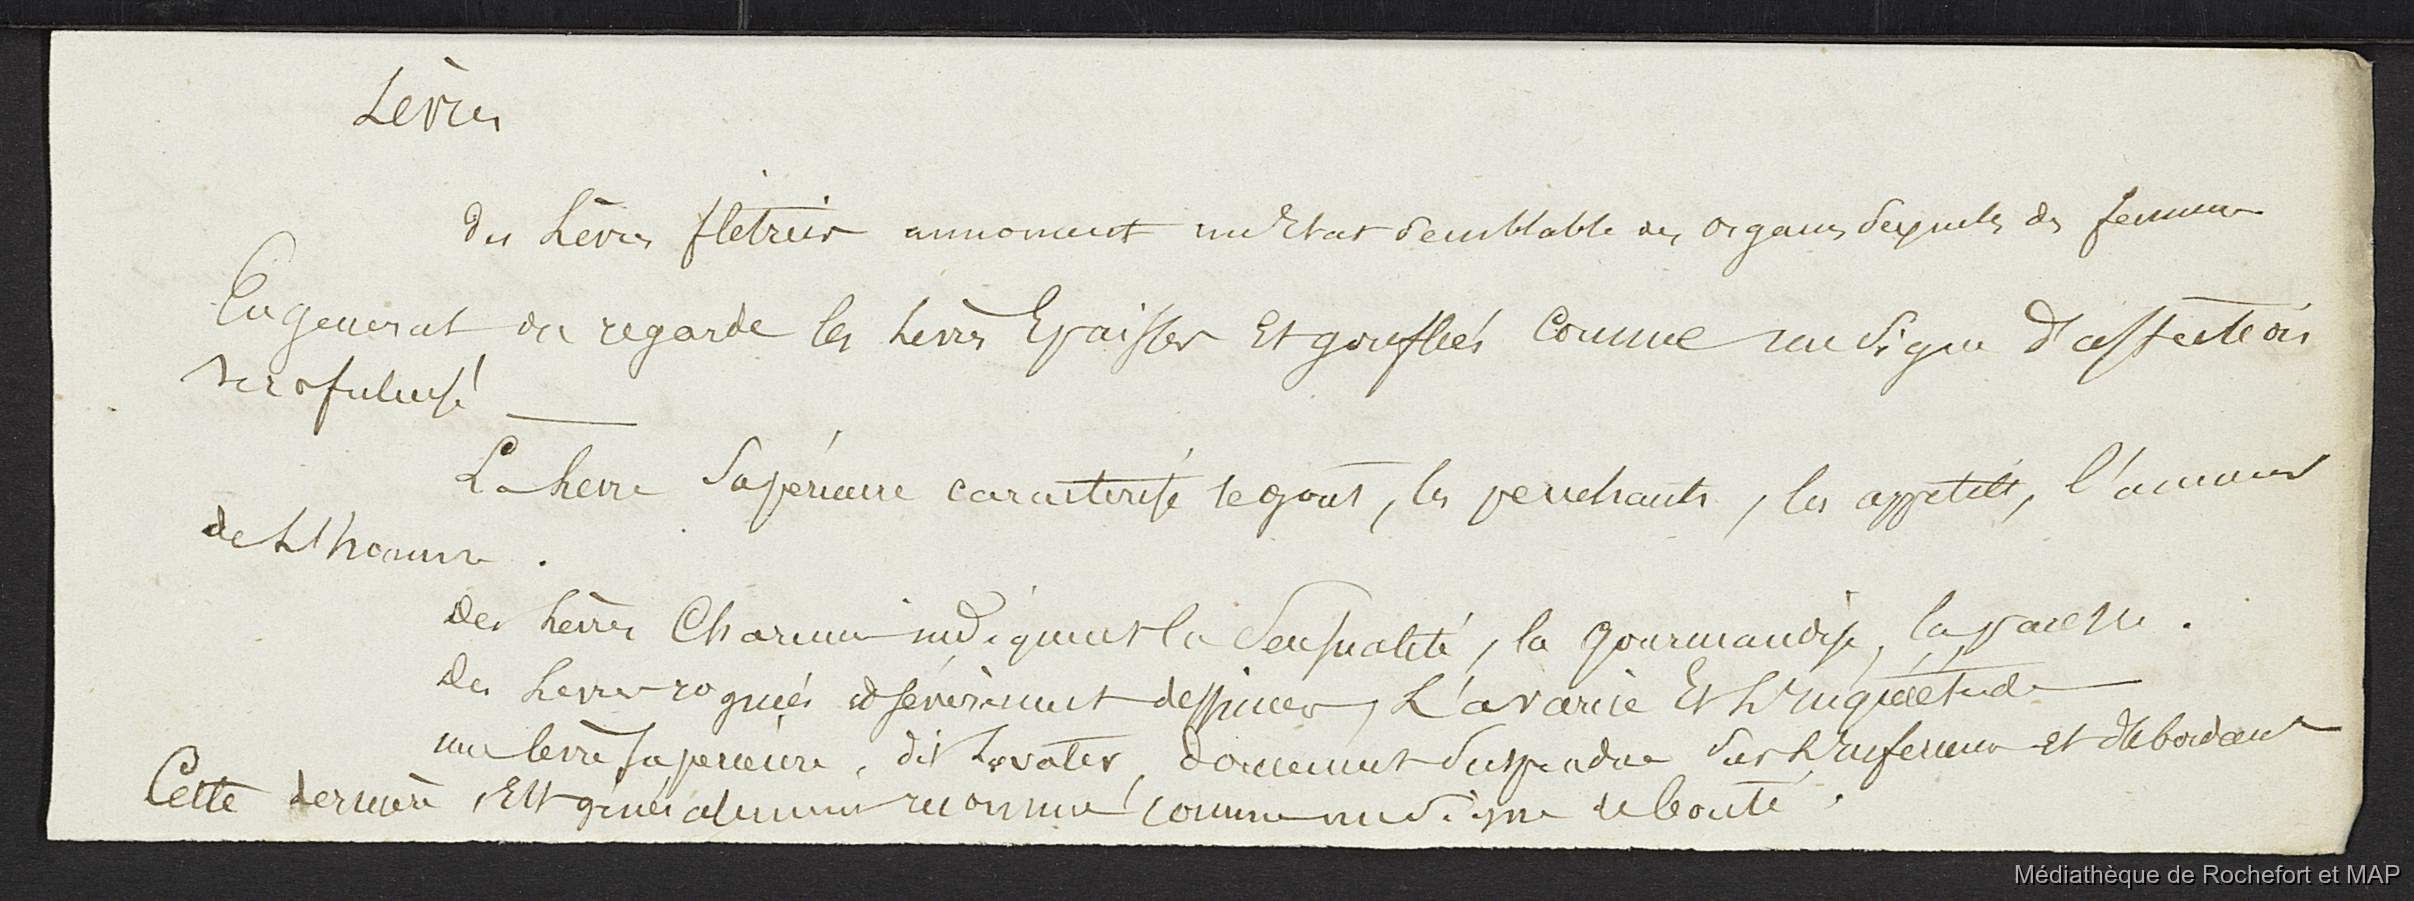 Lèvres
des Lèvres flétries annoncent un Etat semblable des organes sexuels des femmes
En general on regarde les Lèvres Epaisses Et gonflées comme un signe D'affection
scrofuleuse
La Levre Supérieure caracterise le gout, les penchants, les appetits, l'amour
de L'homme.
des Lèvres Charnues indiquent la Sensualité, la gourmandise, la paresse.
des Levres rognées et sévèrement dessinées, L'avarice Et L'inquiétude
une levre superieure, dit Lavater, doucement suspendue sur L'inferieure et debordant
Cette dernière, Est généralement reconnue comme un signe de bonté.
Médiathèque de Rochefort et MAP